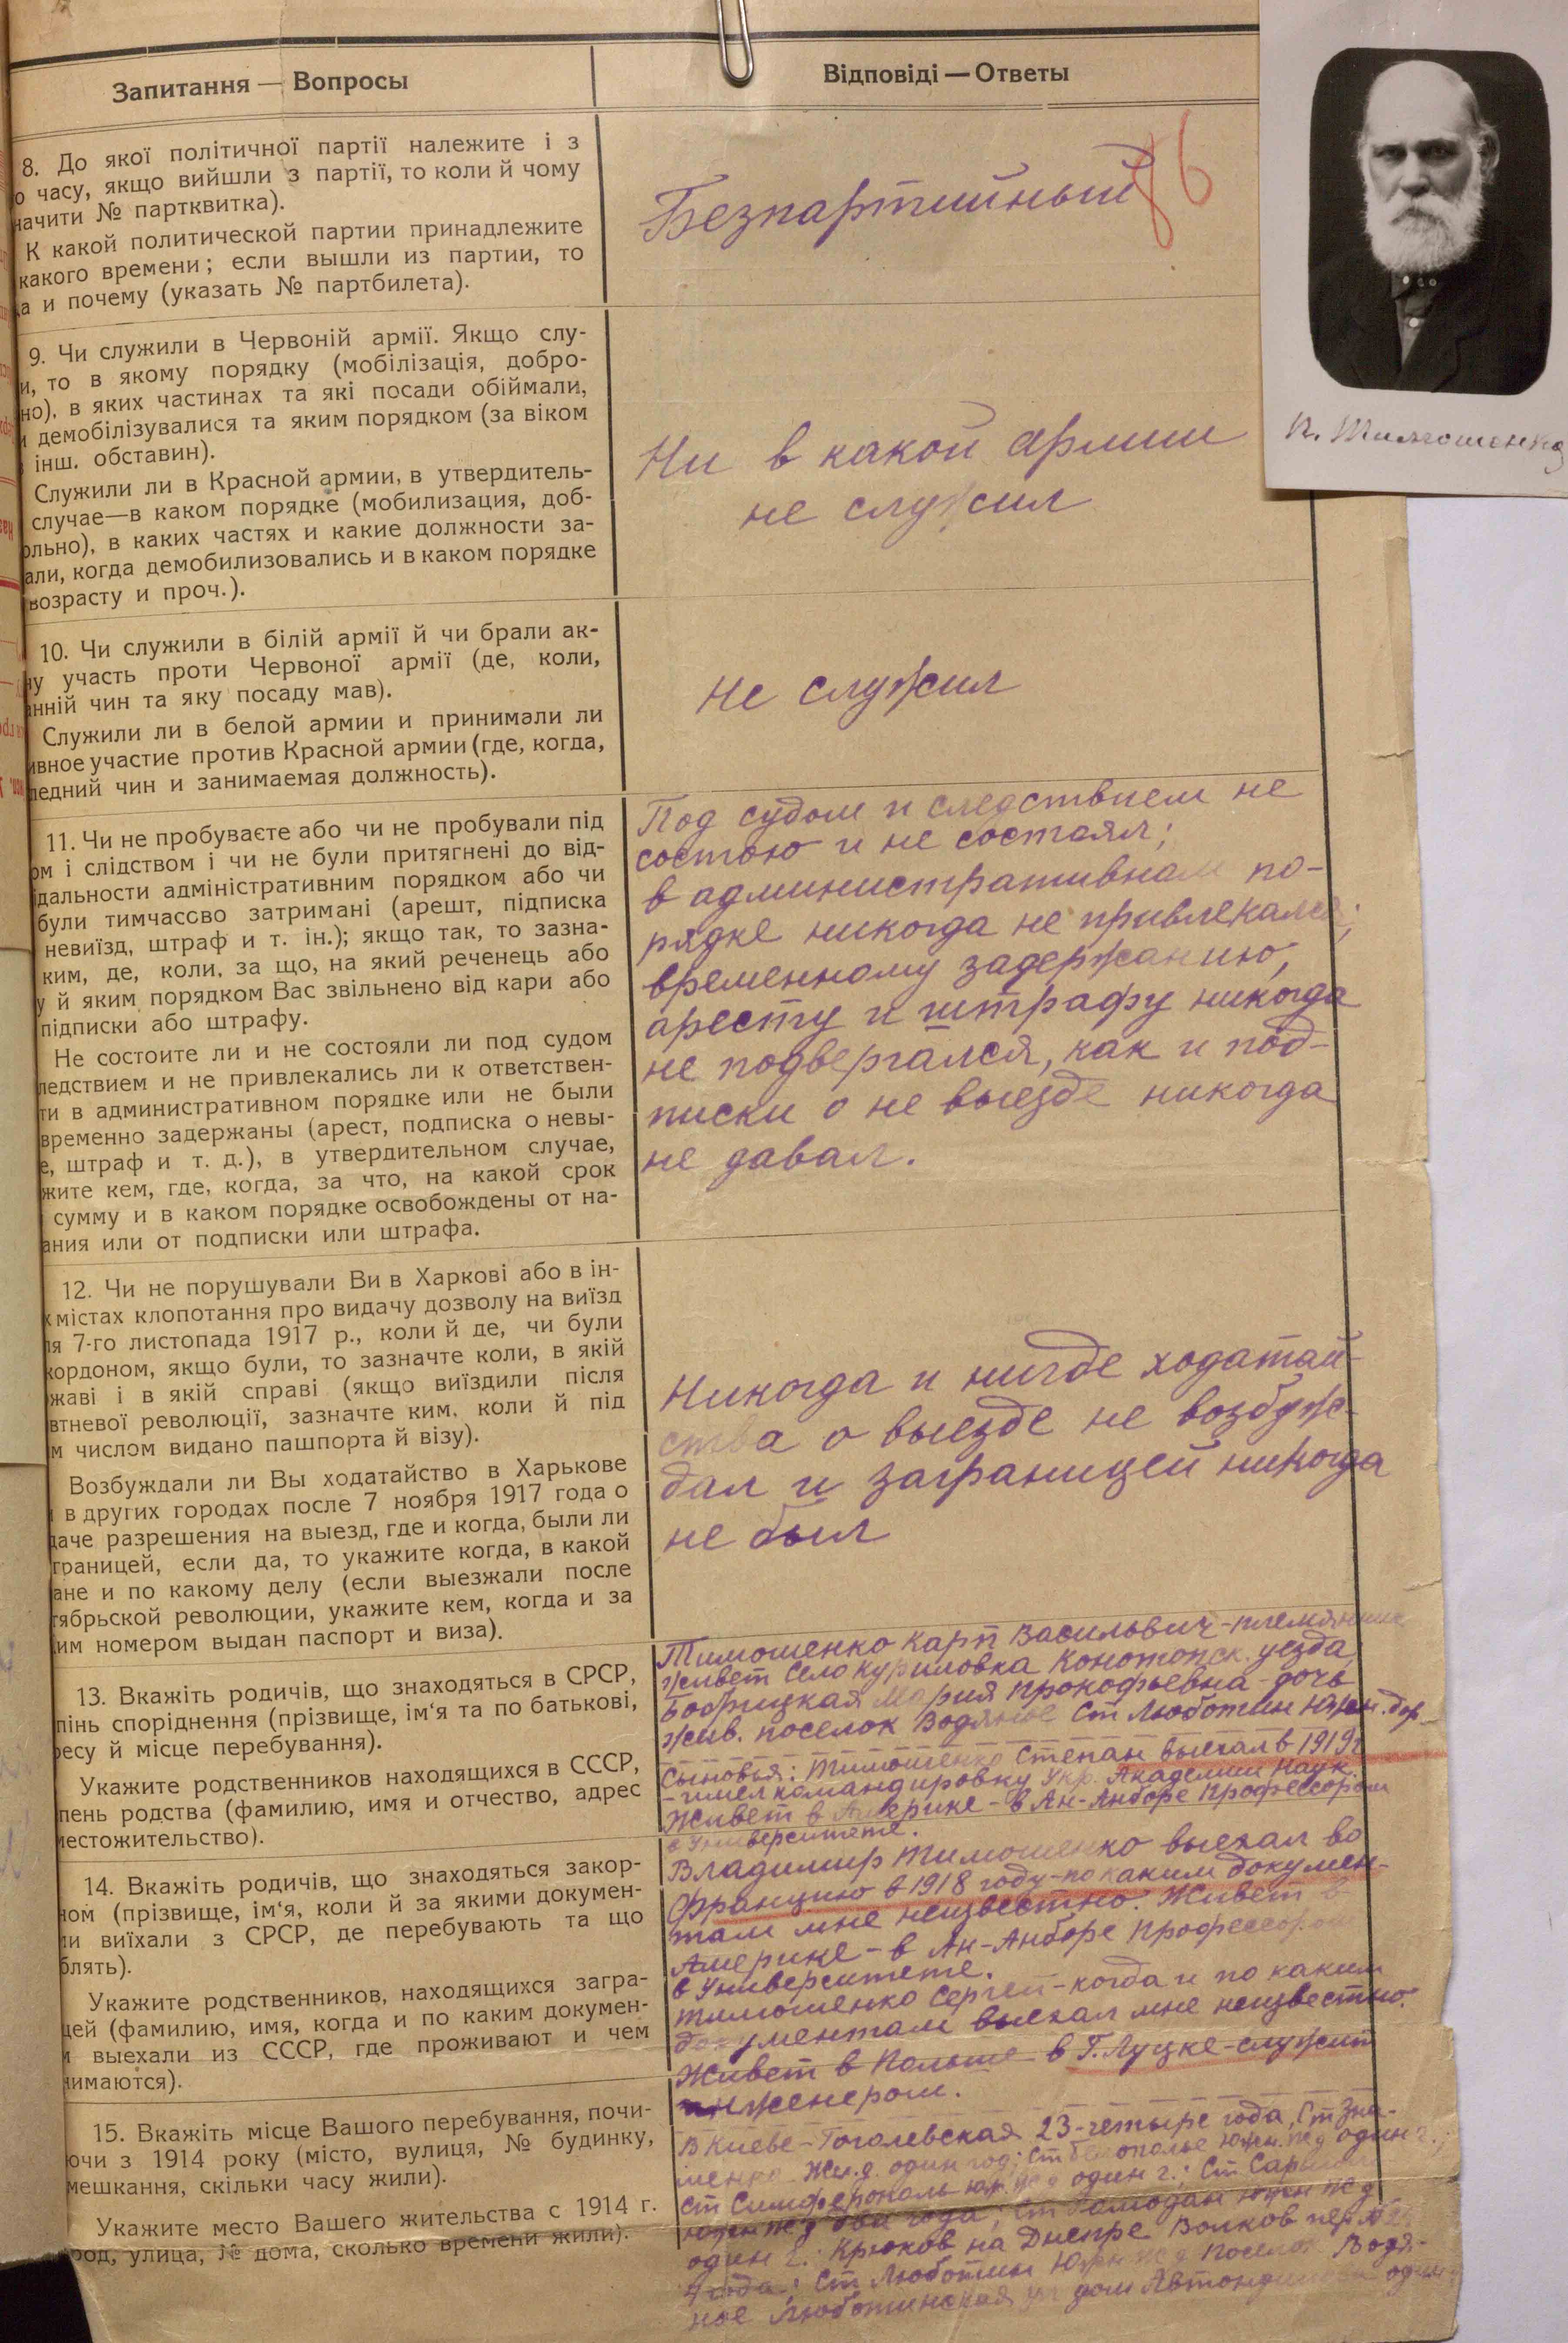 Запитання — Вопросы
Відповіді — Ответы
8. До якої політичної партії належите і з
о часу, якщо вийшли з партії, то коли й чому
начити № партквитка).
К какой политической партии принадлежите
какого времени; если вышли из партии, то
а и почему (указать № партбилета).
Безпартийный
86
П. Тимошенко
9. Чи служили в Червоній армії. Якщо слу-
и, то в якому порядку (мобілізація, добро-
но), в яких частинах та які посади обіймали,
и демобілізувалися та яким порядком (за віком
інш. обставин).
Служили ли в Красной армии, в утвердитель-
случае—в каком порядке (мобилизация, доб-
ольно), в каких частях и какие должности за-
али, когда демобилизовались и в каком порядке
возрасту и проч.).
Ни в какой армии
не служил
10. Чи служили в білій армії й чи брали ак-
ну участь проти Червоної армії (де, коли,
анній чин та яку посаду мав).
Служили ли в белой армии и принимали ли
ивное участие против Красной армии (где, когда,
ледний чин и занимаемая должность).
Не служил
11. Чи не пробуваєте або чи не пробували під
ом і слідством і чи не були притягнені до від-
дальности адміністративним порядком або чи
були тимчасово затримані (арешт, підписка
невиїзд, штраф и т. ін.); якщо так, то зазна-
ким, де, коли, за що, на який реченець або
у й яким порядком Вас звільнено від кари або
підписки або штрафу.
Не состоите ли и не состояли ли под судом
ледствием и не привлекались ли к ответствен-
ти в административном порядке или не были
временно задержаны (арест, подписка о невы-
е, штраф и т. д.), в утвердительном случае,
жите кем, где, когда, за что, на какой срок
сумму и в каком порядке освобождены от на-
ания или от подписки или штрафа.
Под судом и следствием не
состою и не состоял;
в административном по-
рядке никогда не привлекался;
временному задержанию,
аресту и штрафу никогда
не подвергался, как и под-
писки о не выезде никогда
не давал.
12. Чи не порушували Ви в Харкові або в ін-
х містах клопотання про видачу дозволу на виїзд
ля 7-го листопада 1917 р., коли й де, чи були
кордоном, якщо були, то зазначте коли, в якій
жаві і в якій справі (якщо виїздили після
втневої революції, зазначте ким, коли й під
м числом видано пашпорта й візу).
Возбуждали ли Вы ходатайство в Харькове
в других городах после 7 ноября 1917 года о
даче разрешения на выезд, где и когда, были ли
границей, если да, то укажите когда, в какой
ане и по какому делу (если выезжали после
тябрьской революции, укажите кем, когда и за
им номером выдан паспорт и виза).
Никогда и нигде ходатай-
ства о выезде не возбуж-
дал и заграницей никогда
не был
13. Вкажіть родичів, що знаходяться в СРСР,
пінь споріднення (прізвище, ім'я та по батькові,
ресу й місце перебування).
Укажите родственников находящихся в СССР,
пень родства (фамилию, имя и отчество, адрес
местожительство).
Тимошенко Карп Васильович - племянник
Живет Село Куриловка Конотопск. уезда
Бобрицкая Мария Прокофьевна - дочь
жив. поселок Водяное Ст Люботин Южн. дор.
Сыновья: Тимошенко Степан выехал в 1919 г
- имел командировку Укр. Академии Наук.
Живет в Америке - в Ан-Анборе Профессором
в Университете.
14. Вкажіть родичів, що знаходяться закор-
ном (прізвище, ім'я, коли й за якими докумен-
ми виїхали з СРСР, де перебувають та що
блять).
Укажите родственников, находящихся загра-
цей (фамилию, имя, когда и по каким докумен-
м выехали из СССР, где проживают и чем
нимаются).
Владимир Тимошенко выехал во
Францию в 1918 году - по каким докумен-
там мне неизвестно. Живет в
Америке - в Ан-Анборе Профессором
в Университете.
Тимошенко Сергей - когда и по каким
документам выехал мне неизвестно.
Живет в Польше в г. Луцке - служит
инженером.
15. Вкажіть місце Вашого перебування, почи-
ючи з 1914 року (місто, вулиця, № будинку,
мешкання, скільки часу жили).
Укажите место Вашего жительства с 1914 г.
род, улица, № дома, сколько времени жили).
В Киеве - Гоголевская 23 - четыре года, Ст Зна-
менка Ж.д. один год; Ст Белополье Южн. жд один г.;
Ст Симферополь юж. жд один г.; Ст Сарны
южн жд два года; Ст Ромодан южн жд
один г. Крюков на Днепре Волков пер №
года; Ст Люботин Южн жд поселок Водя-
ное Люботинская ул дом один